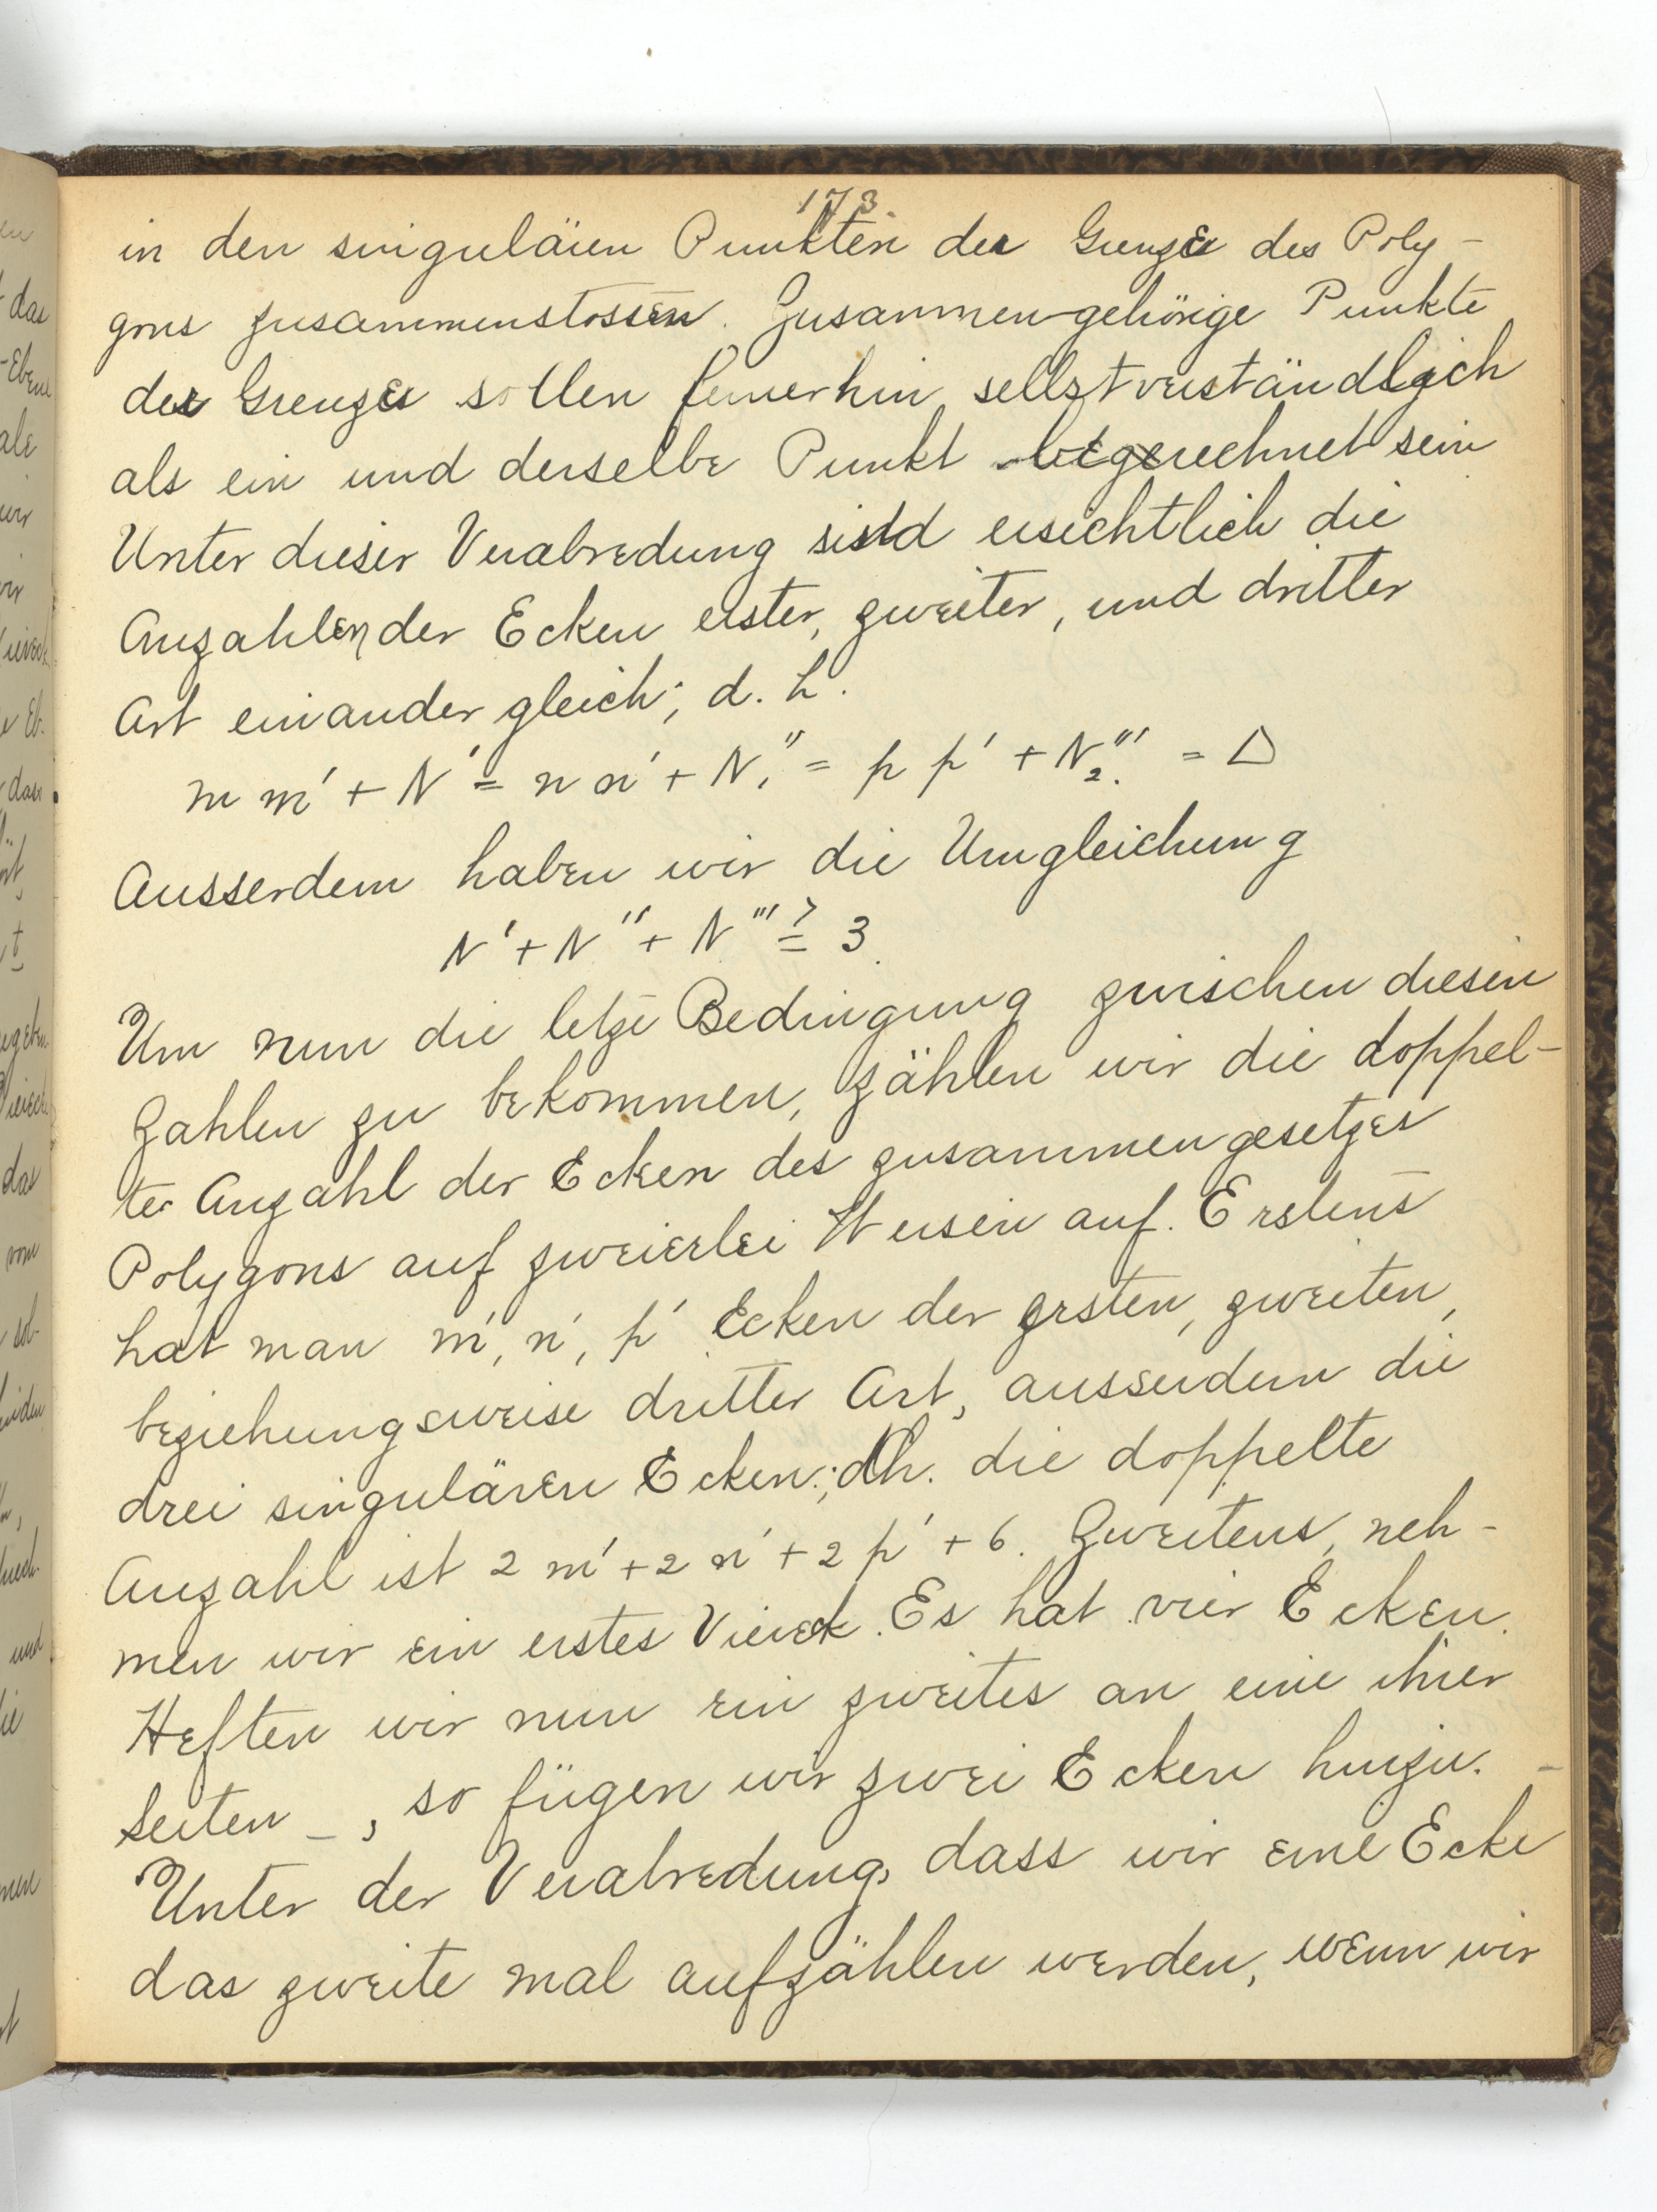 173
in den singulären Punkten der Grenze des Poly-
gons zusammenstossen. Zusammengehörige Punkte
der Grenze sollen fernerhin selbstverständlich
als ein und derselbe Punkt gerechnet sein
Unter dieser Verabredung sind ersichtlich die
Anzahlen der Ecken erster, zweiter, und dritter
Art einander gleich; d. h.
m m' + N' = n n' + N₁'' = p p' + N₂''' = Δ
Ausserdem haben wir die Ungleichung
N' + N'' + N''' ≧ 3.
Um nun die letze Bedingung zwischen diesen
Zahlen zu bekommen, zählen wir die doppel-
te Anzahl der Ecken des zusammengesetzes
Polygons auf zweierlei Weisen auf. Erstens
hat man m', n', p' Ecken der ersten, zweiten,
beziehungsweise dritter Art, ausserdem die
drei singulären Ecken; d.h. die doppelte
Anzahl ist 2 m' + 2 n' + 2 p' + 6. Zweitens, neh-
men wir ein erstes Viereck. Es hat vier Ecken.
Heften wir nun ein zweites an eine ihrer
Seiten –, so fügen wir zwei Ecken hinzu. –
Unter der Verabredung, dass wir eine Ecke
das zweite mal aufzählen werden, wenn wir